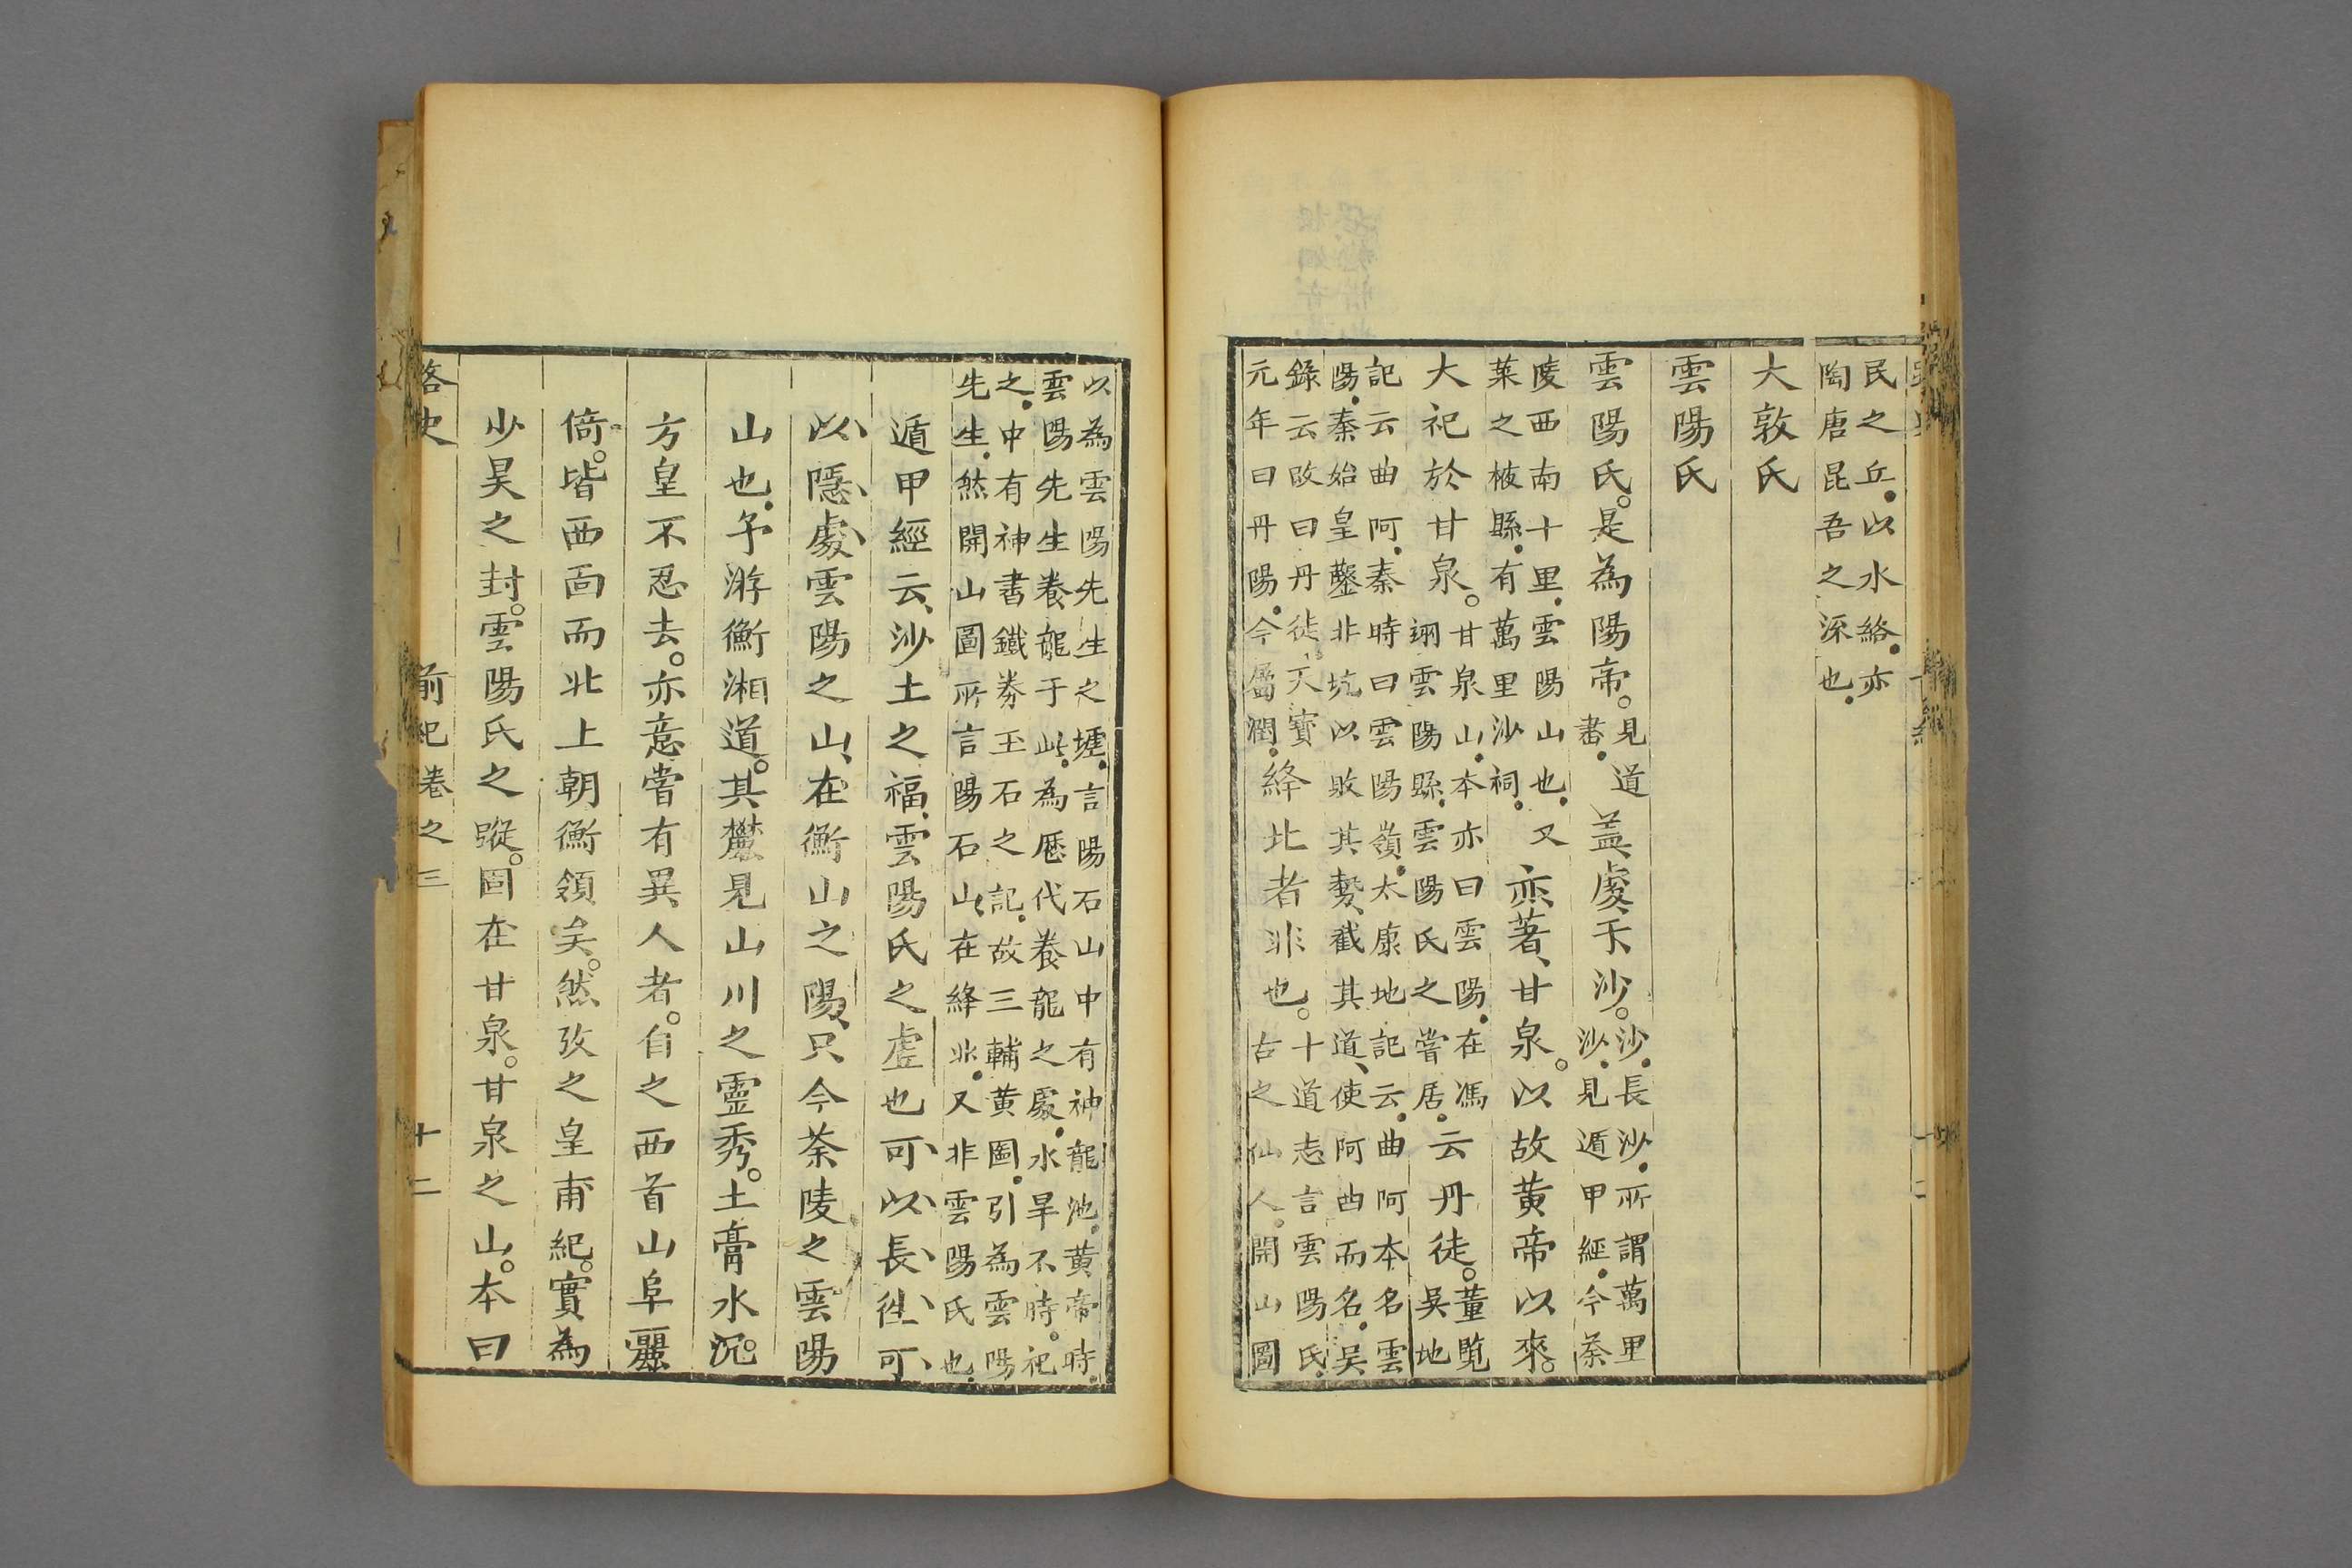 民之丘.以水絡.亦
陶唐昆吾之深也.
大敦氏
雲陽氏
雲陽氏。是為陽帝。見道書.盖處于沙。沙.長沙.所謂萬里沙.見遁甲經.今荼
陵西南十里.雲陽山也.又萊之掖縣.有萬里沙祠.亦著、甘泉。以故黄帝以來。
大祀於甘泉。甘泉山.本亦曰雲陽.在馮翊雲陽縣.雲陽氏之嘗居.云丹徒。董覧吳地
記云曲阿.秦時曰雲陽嶺.太康地記云.曲阿本名雲
陽.秦始皇鑿非坑以敗其勢、截其道、使阿曲而名.吳
錄云改曰丹徒、天寶元年曰丹陽.今屬潤.絳北者非也。十道志言雲陽氏.古之仙人.開山圖
以為雲陽先生之墟.言陽石山中有神龍池.黄帝時.
雲陽先生養龍于此.為歷代養龍之處.水旱不時.祀
之.中有神書鐵券玉石之記.故三輔黄圖.引為雲陽
先生.然開山圖所言陽石山、在絳北.又非雲陽氏也.
遁甲經云、沙土之福、雲陽氏之虛也可以長徃可
以隱處雲陽之山、在衡山之陽、只今荼陵之雲陽
山也.予游衡湘道。其麓見山川之靈秀。土膏水沉。
方皇不忍去。亦意嘗有異人者。自之西首山阜麗
倚。皆西面而北上朝衡領矣。然攷之皇甫紀。實為
少昊之封。雲陽氏之蹤。圖在甘泉。甘泉之山。本曰
路史 前紀卷之三 十二